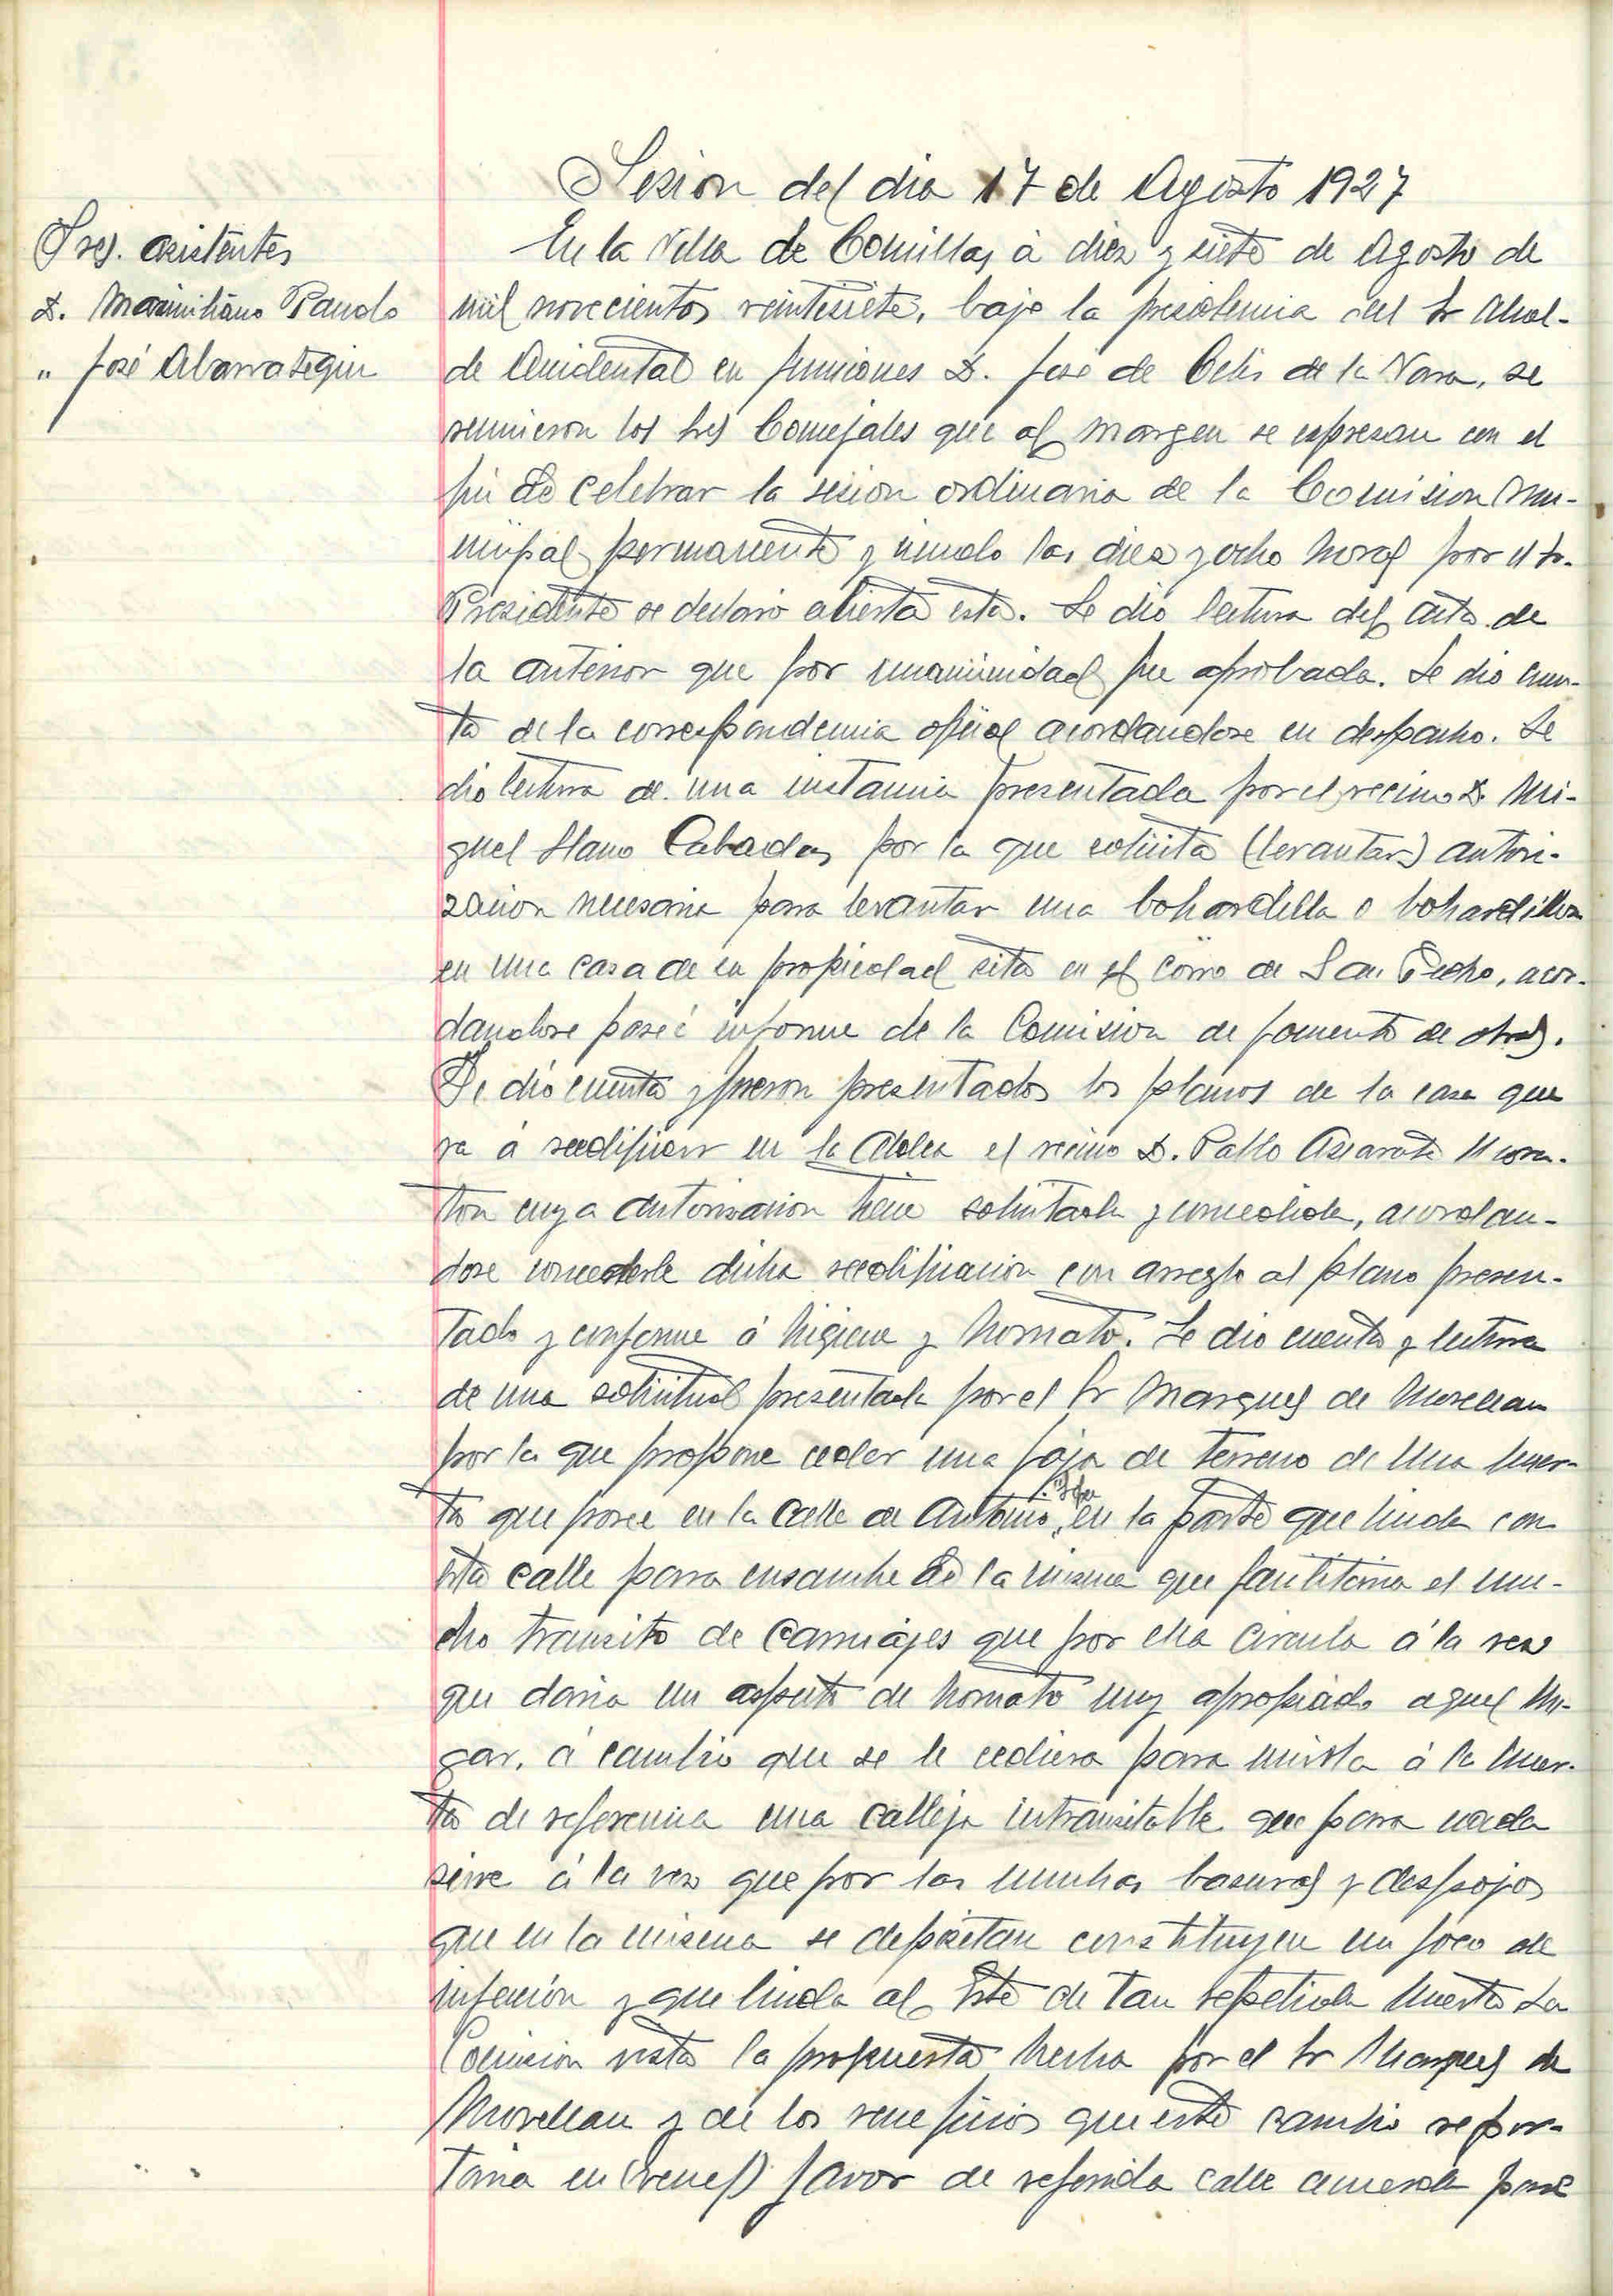 Sesion del dia 17 de Agosto 1927
Sres. asistentes
D. Maximiliano Pando
" José Abarrategui
En la Villa de Comillas á diez y siete de Agosto de
mil novecientos veintisiete, bajo la presidencia del Sr Alcal-
de Accidental en funciones D. José de Celis de la Nava, se
reunieron los Sres Concejales que al margen se expresan con el
fin de celebrar la sesion ordinaria de la Comision Mu-
nicipal permanente y siendo las diez y ocho horas por el Sr.
Presidente se declaró abierta esta. Se dió lectura del acta de
la anterior que por unanimidad fue aprobada. Se dio cuen-
ta de la correspondencia oficial acordandose su despacho. Se
dio lectura de una instancia presentada por el vecino D. Mi-
guel Llano Cabadas, por la que solicita (levantar) autori-
zacion necesaria para levantar una bohardilla o bohardillon
en una casa de su propiedad sita en el corro de San Pedro, acor-
dandose pase á informe de la Comision de fomento de obras.
Se dió cuenta y fueron presentados los planos de la casa que
va á reedificar en la Aldea el vecino D. Pablo Azcarate
cuya autorizacion tiene solicitada y concedida, acordan-
dose concederle dicha reedificacion con arreglo al plano presen-
tado y conforme á higiene y hornato. Se dio cuenta y lectura
de una solicitud presentada por el Sr Marques de Movellan
por la que propone ceder una faja de terreno de una huer-
ta que posee en la calle de Antonio en la parte que linda con
esta calle para ensanche de la misma que facilitaria el mu-
cho transito de carruajes que por ella circula á la vez
que daria un aspecto de hornato muy apropiado aquel lu-
gar, á cambio que se le cediera para unirla á la huer-
ta de referencia una calleja intransitable que para nada
sirve á la vez que por las muchas basuras y despojos
que en la misma se depositan constituyen un foco de
infección y que linda al Este de tan repetida huerta La
Comision vista la propuesta hecha por el Sr Marques de
Movellan y de los veneficios que este cambio repor-
taria en (venef) favor de referida calle acuerda pase